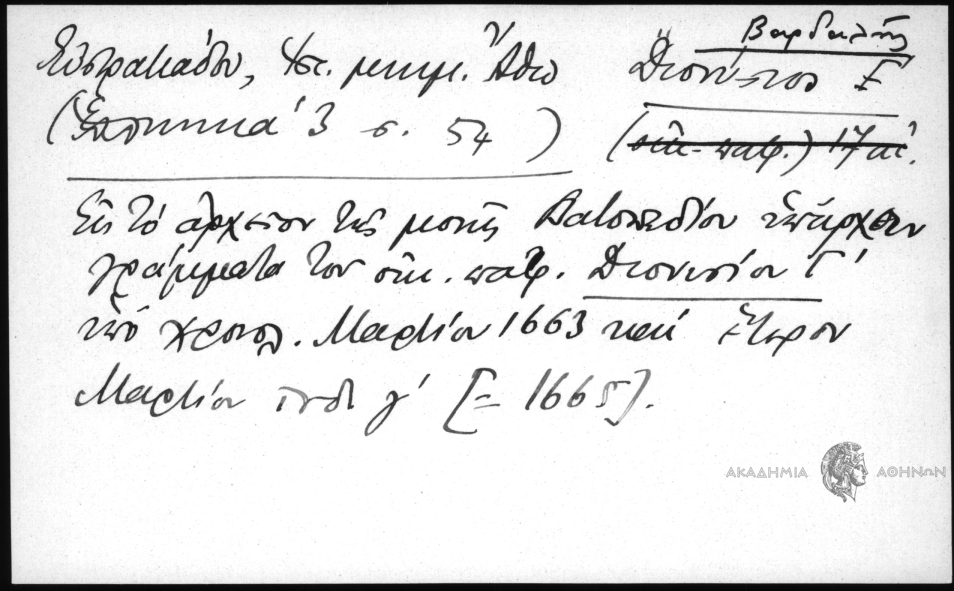 Βαρδαλής
Εὐστρατιάδου, Ἱστ. μνημ. Ἄθω Διονύσιος Γ΄
(Ἑλληνικά 3 σ. 54) (οἰκ. πατρ.) 17 αἰ.
Εἰς τὸ ἀρχεῖον τῆς μονῆς Βατοπεδίου ὑπάρχουν
γράμματα τοῦ οἰκ. πατρ. Διονυσίου Γ΄
ὑπὸ χρονολ. Μαρτίου 1663 καὶ ἕτερον
Μαρτίου ἰνδ. γ΄ [= 1665].
ΑΚΑΔΗΜΙΑ ΑΘΗΝΩΝ